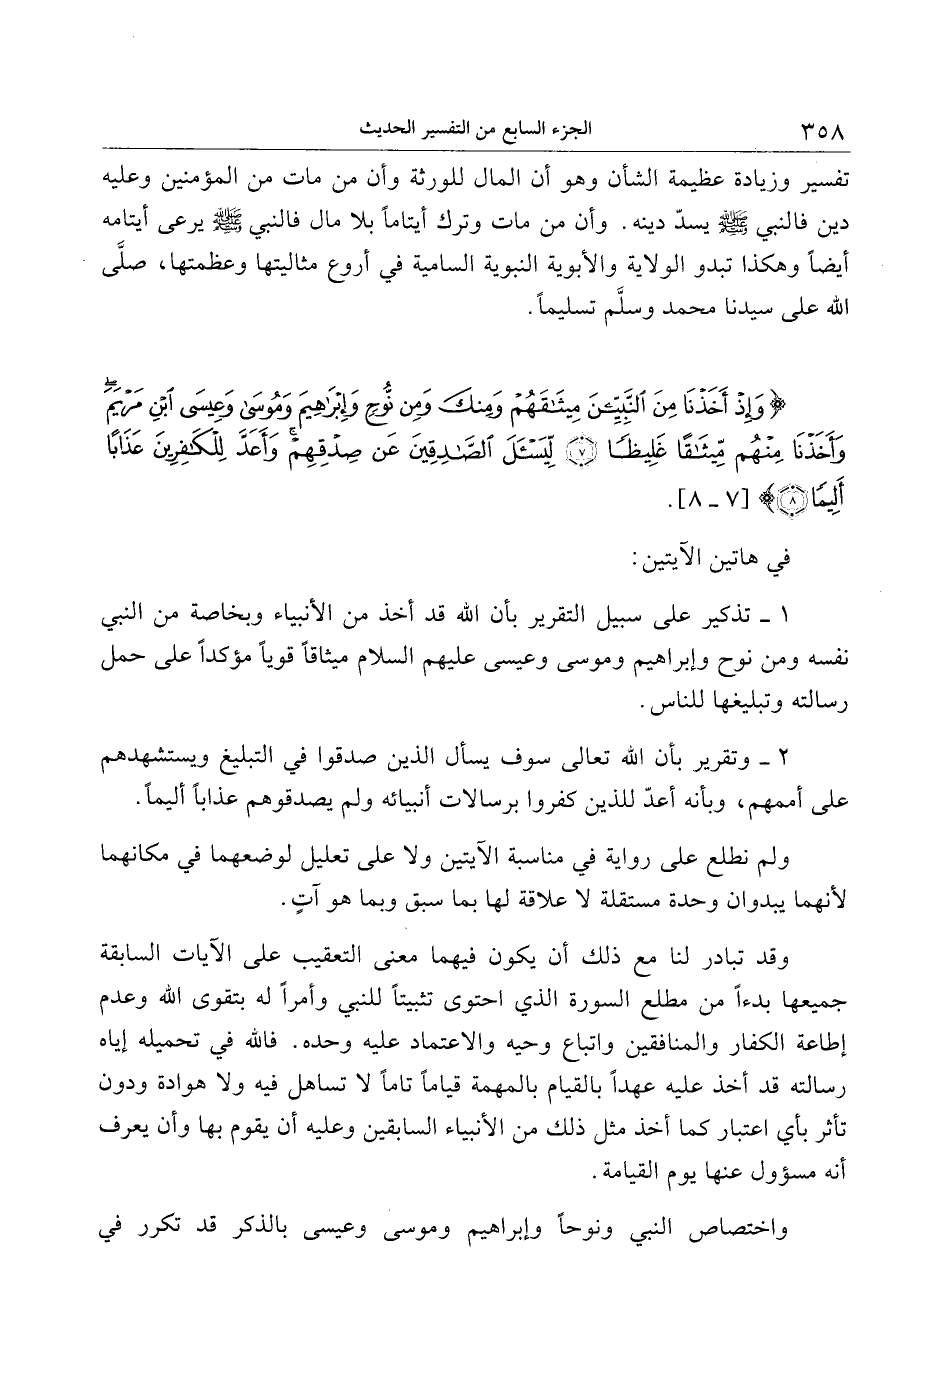 ٣٥٨ الجزء السابع من التفسير الحديث
تفسير وزيادة عظيمة الشأن وهو أن المال للورثة وأن من مات من المؤمنين وعليه
دين فالنبي ﷺ يسدّ دينه. وأن من مات وترك أيتاماً بلا مال فالنبي ﷺ يرعى أيتامه
أيضاً وهكذا تبدو الولاية والأبوية النبوية السامية في أروع مثاليتها وعظمتها، صلَّى
الله على سيدنا محمد وسلَّم تسليماً.
﴿وَإِذْ أَخَذْنَا مِنَ ٱلنَّبِيِّـۧنَ مِيثَٰقَهُمْ وَمِنكَ وَمِن نُّوحٍ وَإِبْرَٰهِيمَ وَمُوسَىٰ وَعِيسَى ٱبْنِ مَرْيَمَۖ
وَأَخَذْنَا مِنْهُم مِّيثَٰقًا غَلِيظًا ٧ لِّيَسْـَٔلَ ٱلصَّٰدِقِينَ عَن صِدْقِهِمْۚ وَأَعَدَّ لِلْكَٰفِرِينَ عَذَابًا
أَلِيمًا ٨﴾ [٧ ـ ٨].
في هاتين الآيتين:
١ ـ تذكير على سبيل التقرير بأن الله قد أخذ من الأنبياء وبخاصة من النبي
نفسه ومن نوح وإبراهيم وموسى وعيسى عليهم السلام ميثاقاً قوياً مؤكداً على حمل
رسالته وتبليغها للناس.
٢ ـ وتقرير بأن الله تعالى سوف يسأل الذين صدقوا في التبليغ ويستشهدهم
على أممهم، وبأنه أعدّ للذين كفروا برسالات أنبيائه ولم يصدقوهم عذاباً أليماً.
ولم نطلع على رواية في مناسبة الآيتين ولا على تعليل لوضعهما في مكانهما
لأنهما يبدوان وحدة مستقلة لا علاقة لها بما سبق وبما هو آتٍ.
وقد تبادر لنا مع ذلك أن يكون فيهما معنى التعقيب على الآيات السابقة
جميعها بدءاً من مطلع السورة الذي احتوى تثبيتاً للنبي وأمراً له بتقوى الله وعدم
إطاعة الكفار والمنافقين واتباع وحيه والاعتماد عليه وحده. فالله في تحميله إياه
رسالته قد أخذ عليه عهداً بالقيام بالمهمة قياماً تاماً لا تساهل فيه ولا هوادة ودون
تأثر بأي اعتبار كما أخذ مثل ذلك من الأنبياء السابقين وعليه أن يقوم بها وأن يعرف
أنه مسؤول عنها يوم القيامة.
واختصاص النبي ونوحاً وإبراهيم وموسى وعيسى بالذكر قد تكرر في